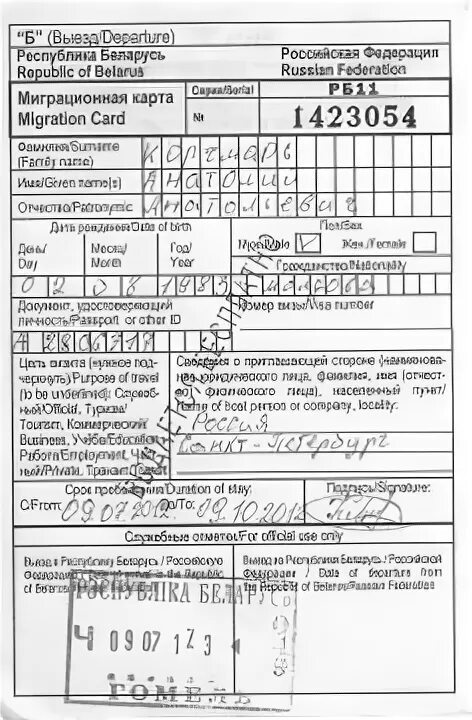 "Б" (Выезд/Departure)
Республика Беларусь
Republic of Belarus
Российская Федерация
Russian Federation
Миграционная карта
Migration Card
Серия/Serial
РБ11
№
1423054
Фамилия/Surname
(Family name)
Корчмарь
Имя/Given name(s)
Анатолий
Отчество/Patronymic
Анатольевич
Дата рождения/Date of birth
День/
Day
Месяц/
Month
Год/
Year
Пол/Sex
Муж./Male
Жен./Female
Гражданство/Nationality
02 06 1983
Молдова
Документ, удостоверяющий
личность/Passport or other ID
Номер визы/Visa number:
А
Цель визита (нужное под-
черкнуть)/Purpose of travel
(to be underlined): Служеб-
ный/Official, Туризм/
Tourism, Коммерческий/
Business, Учёба/Education,
Работа/Employment, Част-
ный/Private, Транзит/Transit
Сведения о приглашающей стороне (наименова-
ние юридического лица, фамилия, имя (отчест-
во) физического лица), населенный пункт/
Name of host person or company, locality:
Россия
Санкт-Петербург
ВЫДАЕТСЯ БЕСПЛАТНО
Срок пребывания/Duration of stay:
С/From: 09.07.2012 До/To: 09.10.2012
Подпись/Signature:
Служебные отметки/For official use only
Въезд в Республику Беларусь / Российскую
Федерацию
Выезд из Республики Беларусь / Российской
Федерации / Date of departure from
the Republic of Belarus/Russian Federation
РЭСПУБЛІКА БЕЛАРУСЬ
09 07 12
ГОМЕЛЬ